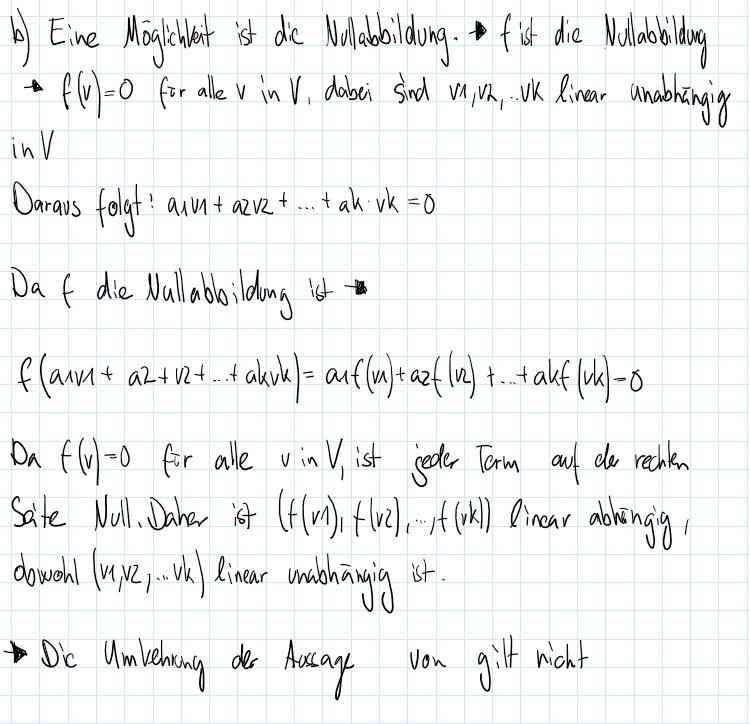 b) Eine Möglichkeit ist die Nullabbildung. → f ist die Nullabbildung
→ f(v)=0 für alle v in V, dabei sind v1,v2,..vk linear unabhängig
in V
Daraus folgt: a1v1 + a2v2 + ... + ak·vk = 0
Da f die Nullabbildung ist →
f(a1v1 + a2+v2+...+akvk) = a1f(v1)+a2f(v2) +...+akf(vk)=0
Da f(v)=0 für alle v in V, ist jeder Term auf der rechten
Seite Null. Daher ist (f(v1), f(v2),...,f(vk)) linear abhängig,
obwohl (v1,v2,...vk) linear unabhängig ist.
→ Die Umkehrung der Aussage von gilt nicht